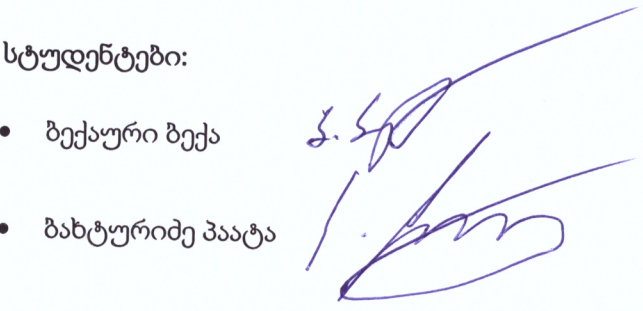 სტუდენტები:
• ბექაური ბექა
• ბახტურიძე პაატა